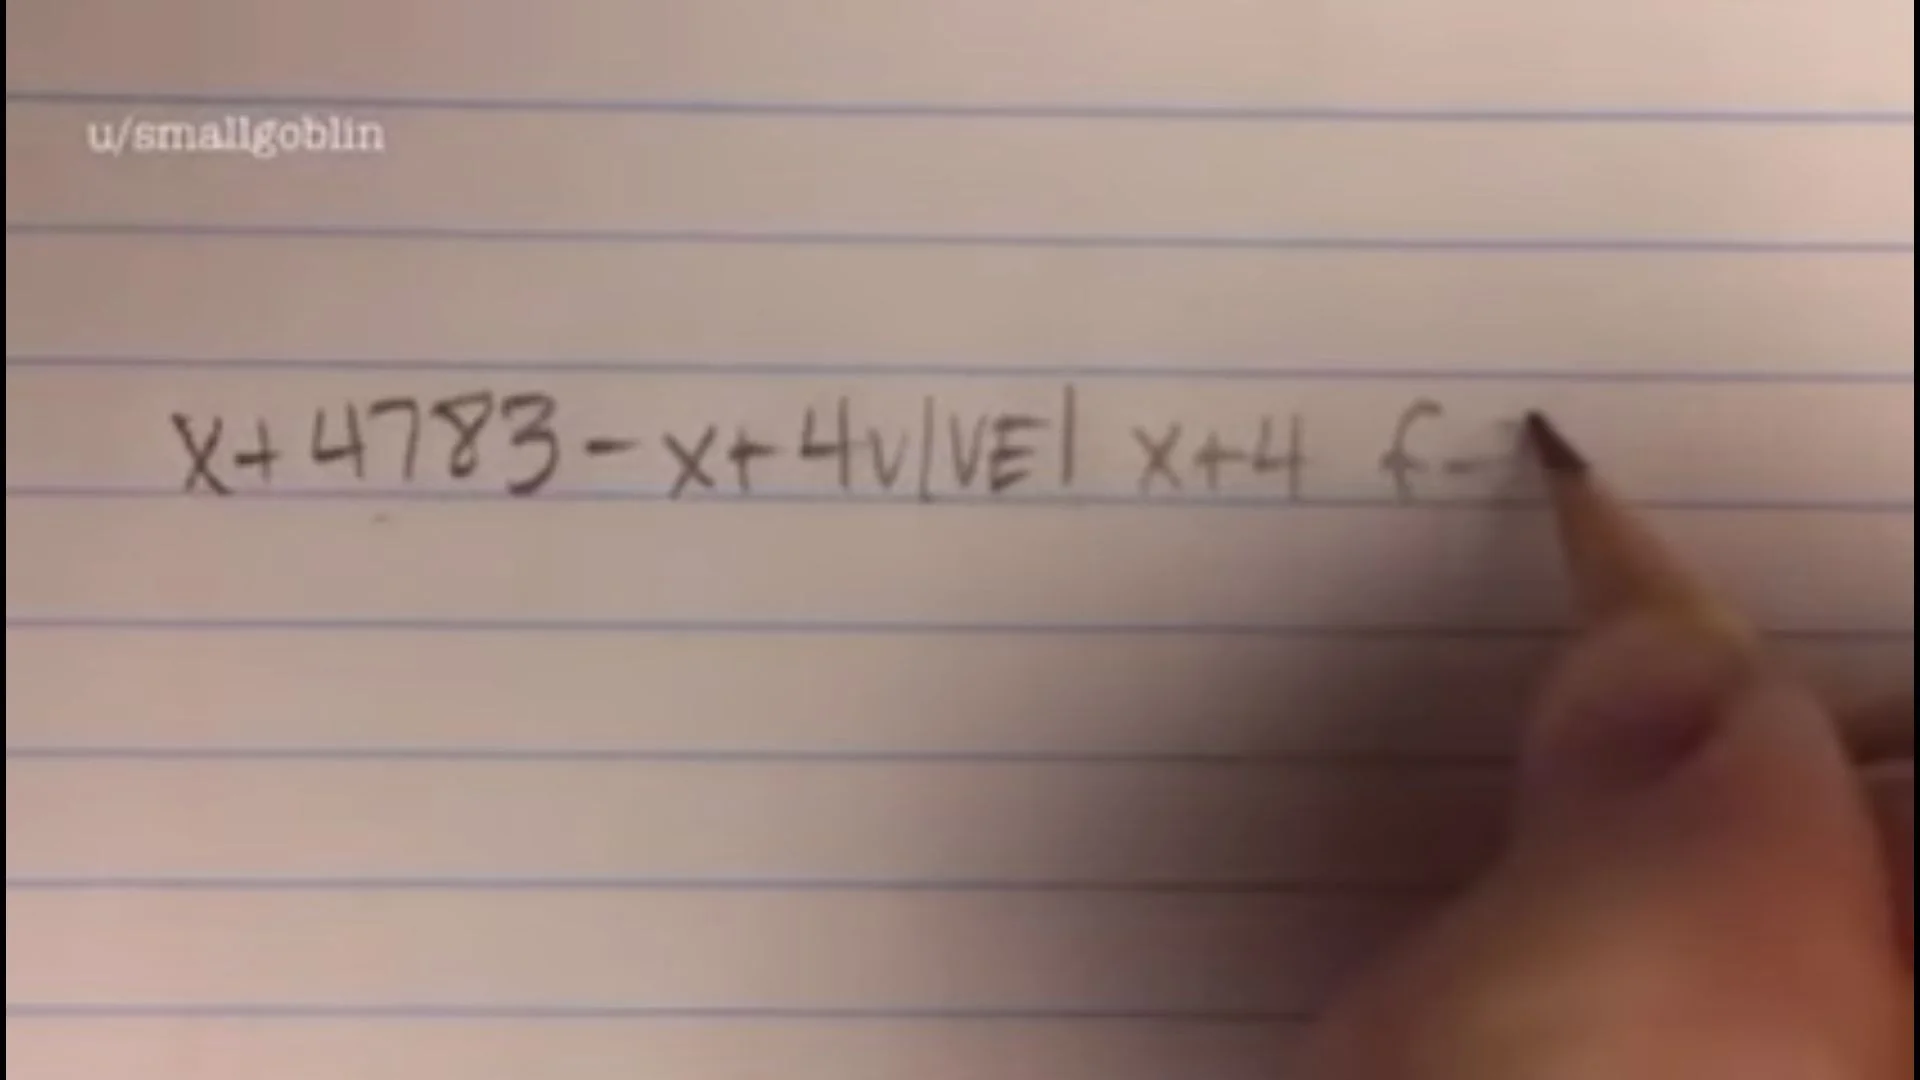 u/smallgoblin
x+4783-x+4V|VE| x+4 f-